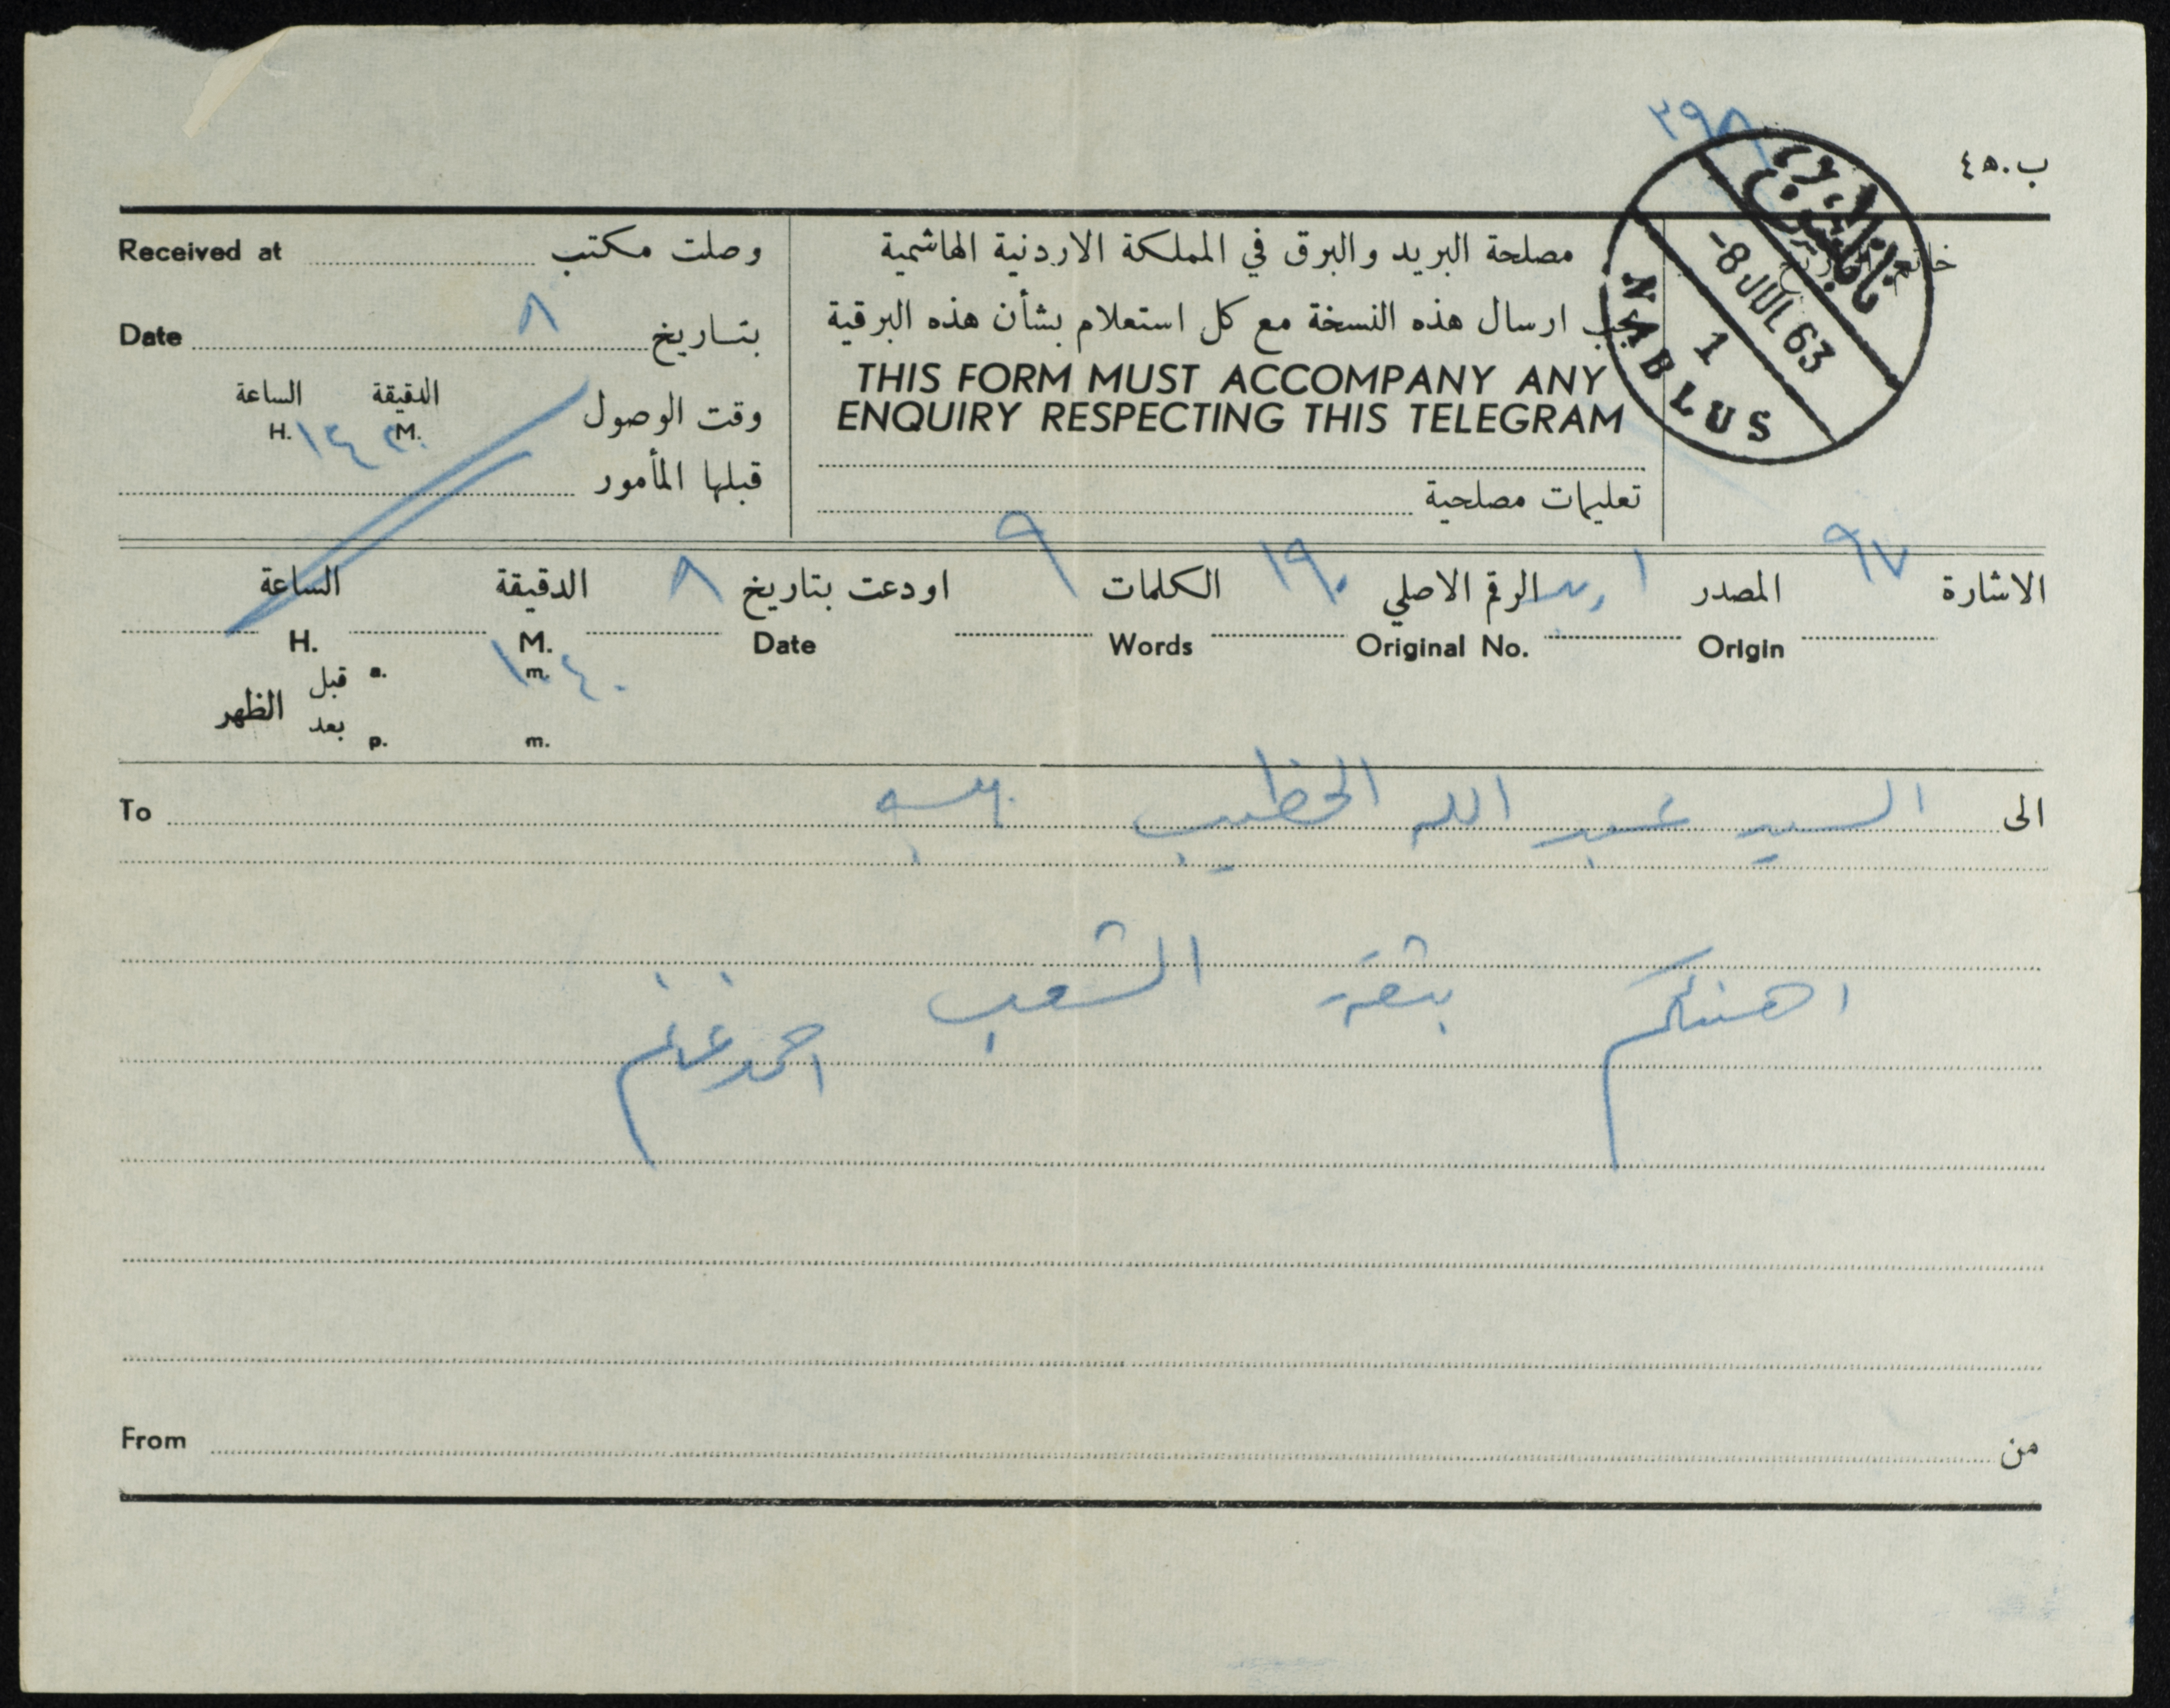 ٢٩٨
ب.٥٤
نابلس
-8 JUL 63
1
NABLUS
وصلت مكتب Received at
مصلحة البريد والبرق في المملكة الاردنية الهاشمية
بتاريخ ٨ Date
يجب ارسال هذه النسخة مع كل استعلام بشأن هذه البرقية
THIS FORM MUST ACCOMPANY ANY
ENQUIRY RESPECTING THIS TELEGRAM
وقت الوصول الدقيقة الساعة
H. ١٤ M.
قبلها المأمور
تعليمات مصلحية
الاشارة ٩٧ المصدر اربد الرقم الاصلي ١٩٠ الكلمات ٩ اودعت بتاريخ ٨ الدقيقة الساعة
Origin Original No. Words Date M. H.
١٠٤٠
قبل a. m.
الظهر
بعد p. m.
الى السيد عبد الله الخطيب To
اهنئكم بثقة الشعب
احمد غنايم
من From